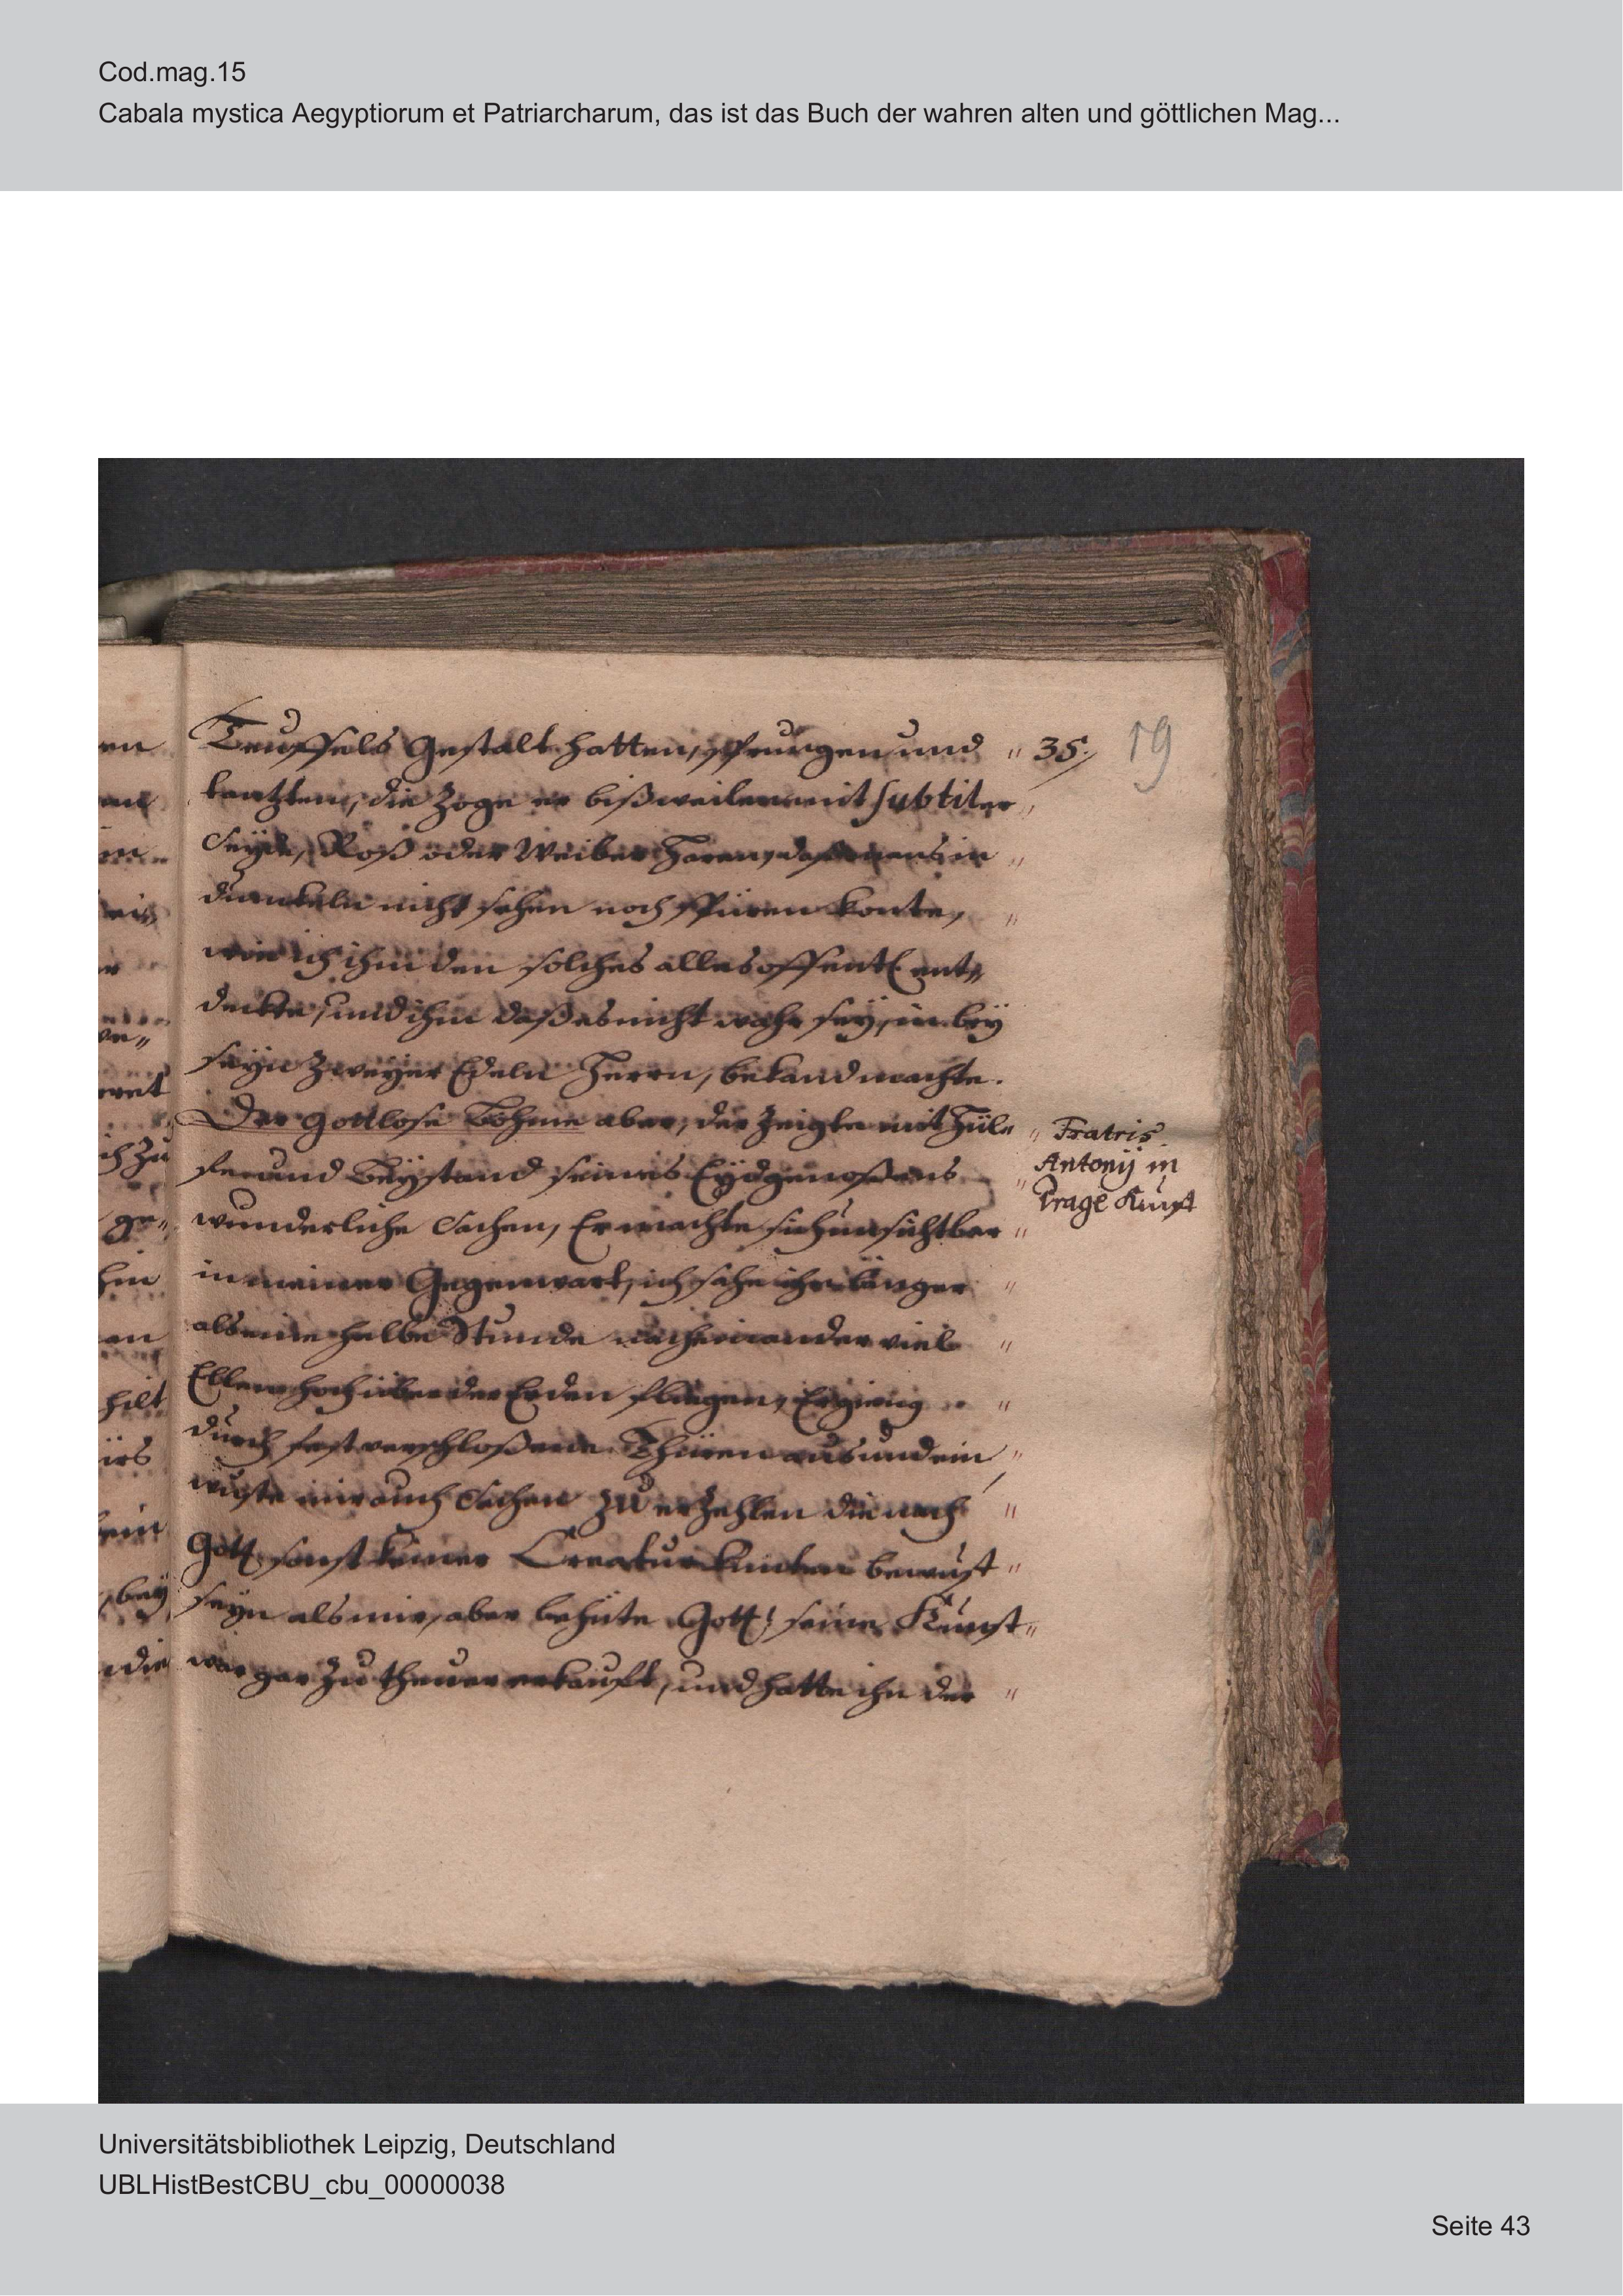 Cod.mag.15
Cabala mystica Aegyptiorum et Patriarcharum, das ist das Buch der wahren alten und göttlichen Mag...
Teuffels Gestalt hatten, sprungen und " 35. 19
tantzten, die Zoge er bißweilen mit subtiler "
Seyde, Roß oder Weiber Haren, das mans im "
dunckeln nicht sehen noch spüren konte, "
wie ich ihm den solches alles offentl ent„
deckte, und ihm daß es nicht wahr sey, in bey
seyn zweyer Edeln Herrn, bekand machte.
Der gottlose Böhme aber, der Zeigte mit Hül„ "
fe und Beystand seines Eydgenoßens "
Fratris
Antonij in
Prage Kunst
wunderliche Sachen, Er machte sich unsichtbar "
in meiner Gegenwart, ich sahe ihn länger "
als eine halbe Stunde nacheinander viel "
Ellen hoch über der Erden fliegen, Er gieng "
durch fest verschloßene Thüren aus und ein "
wuste mir auch Sachen zu erzehlen die nach "
Gott sonst keiner Creatur bewust "
seyn als mir, aber behüte Gott! seine Kunst "
war gar zu theuer erkaufft, und hatte ihn der "
Universitätsbibliothek Leipzig, Deutschland
UBLHistBestCBU_cbu_00000038
Seite 43